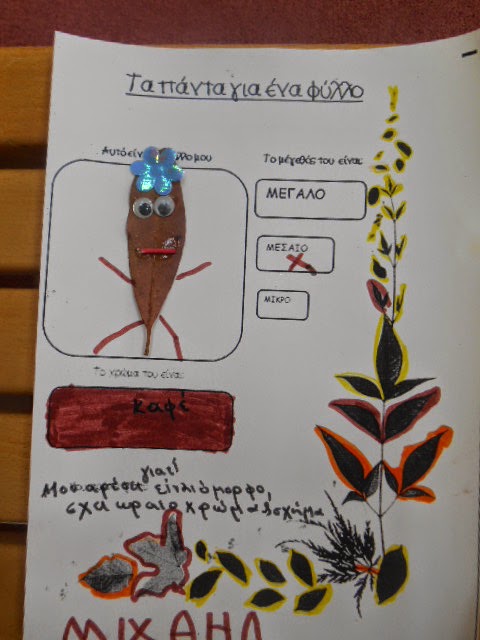 Τα πάντα για ένα φύλλο
Αυτό είν λλο μου
Το μέγεθός του είναι:
ΜΕΓΑΛΟ
ΜΕΣΑΙΟ
ΜΙΚΡΟ
Το χρώμα του είναι:
καφέ
γιατί
Μου αρέσει
έχει ωραίο χρώμα σχήμα
ΜΙΧΑΗΛ